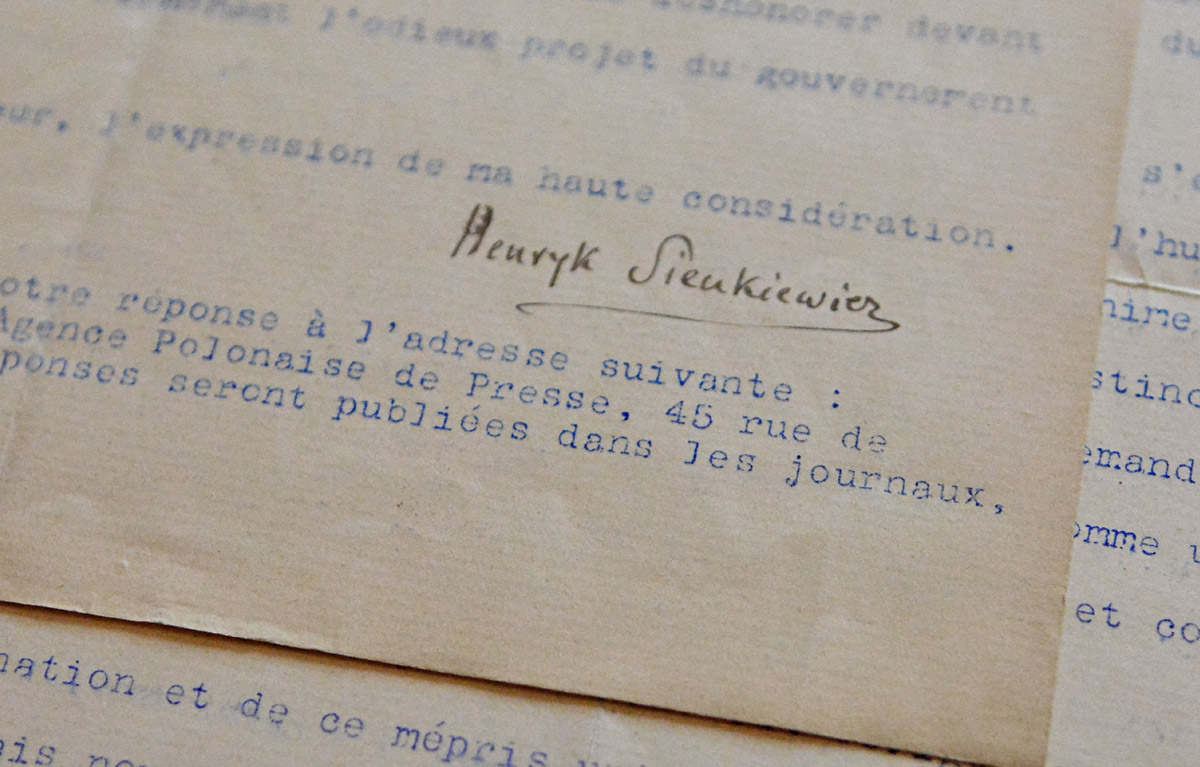 deshonorer devant
l'odieux projet du gouvernerent
eur, l'expression de ma haute considération.
Henryk Sienkiewicz
otre réponse à l'adresse suivante :
Agence Polonaise de Presse, 45 rue de
ponses seront publiées dans les journaux,
nation et de ce mépris
ais
du
s'e
l'hu
nime
stinc
emand
omme u
et co